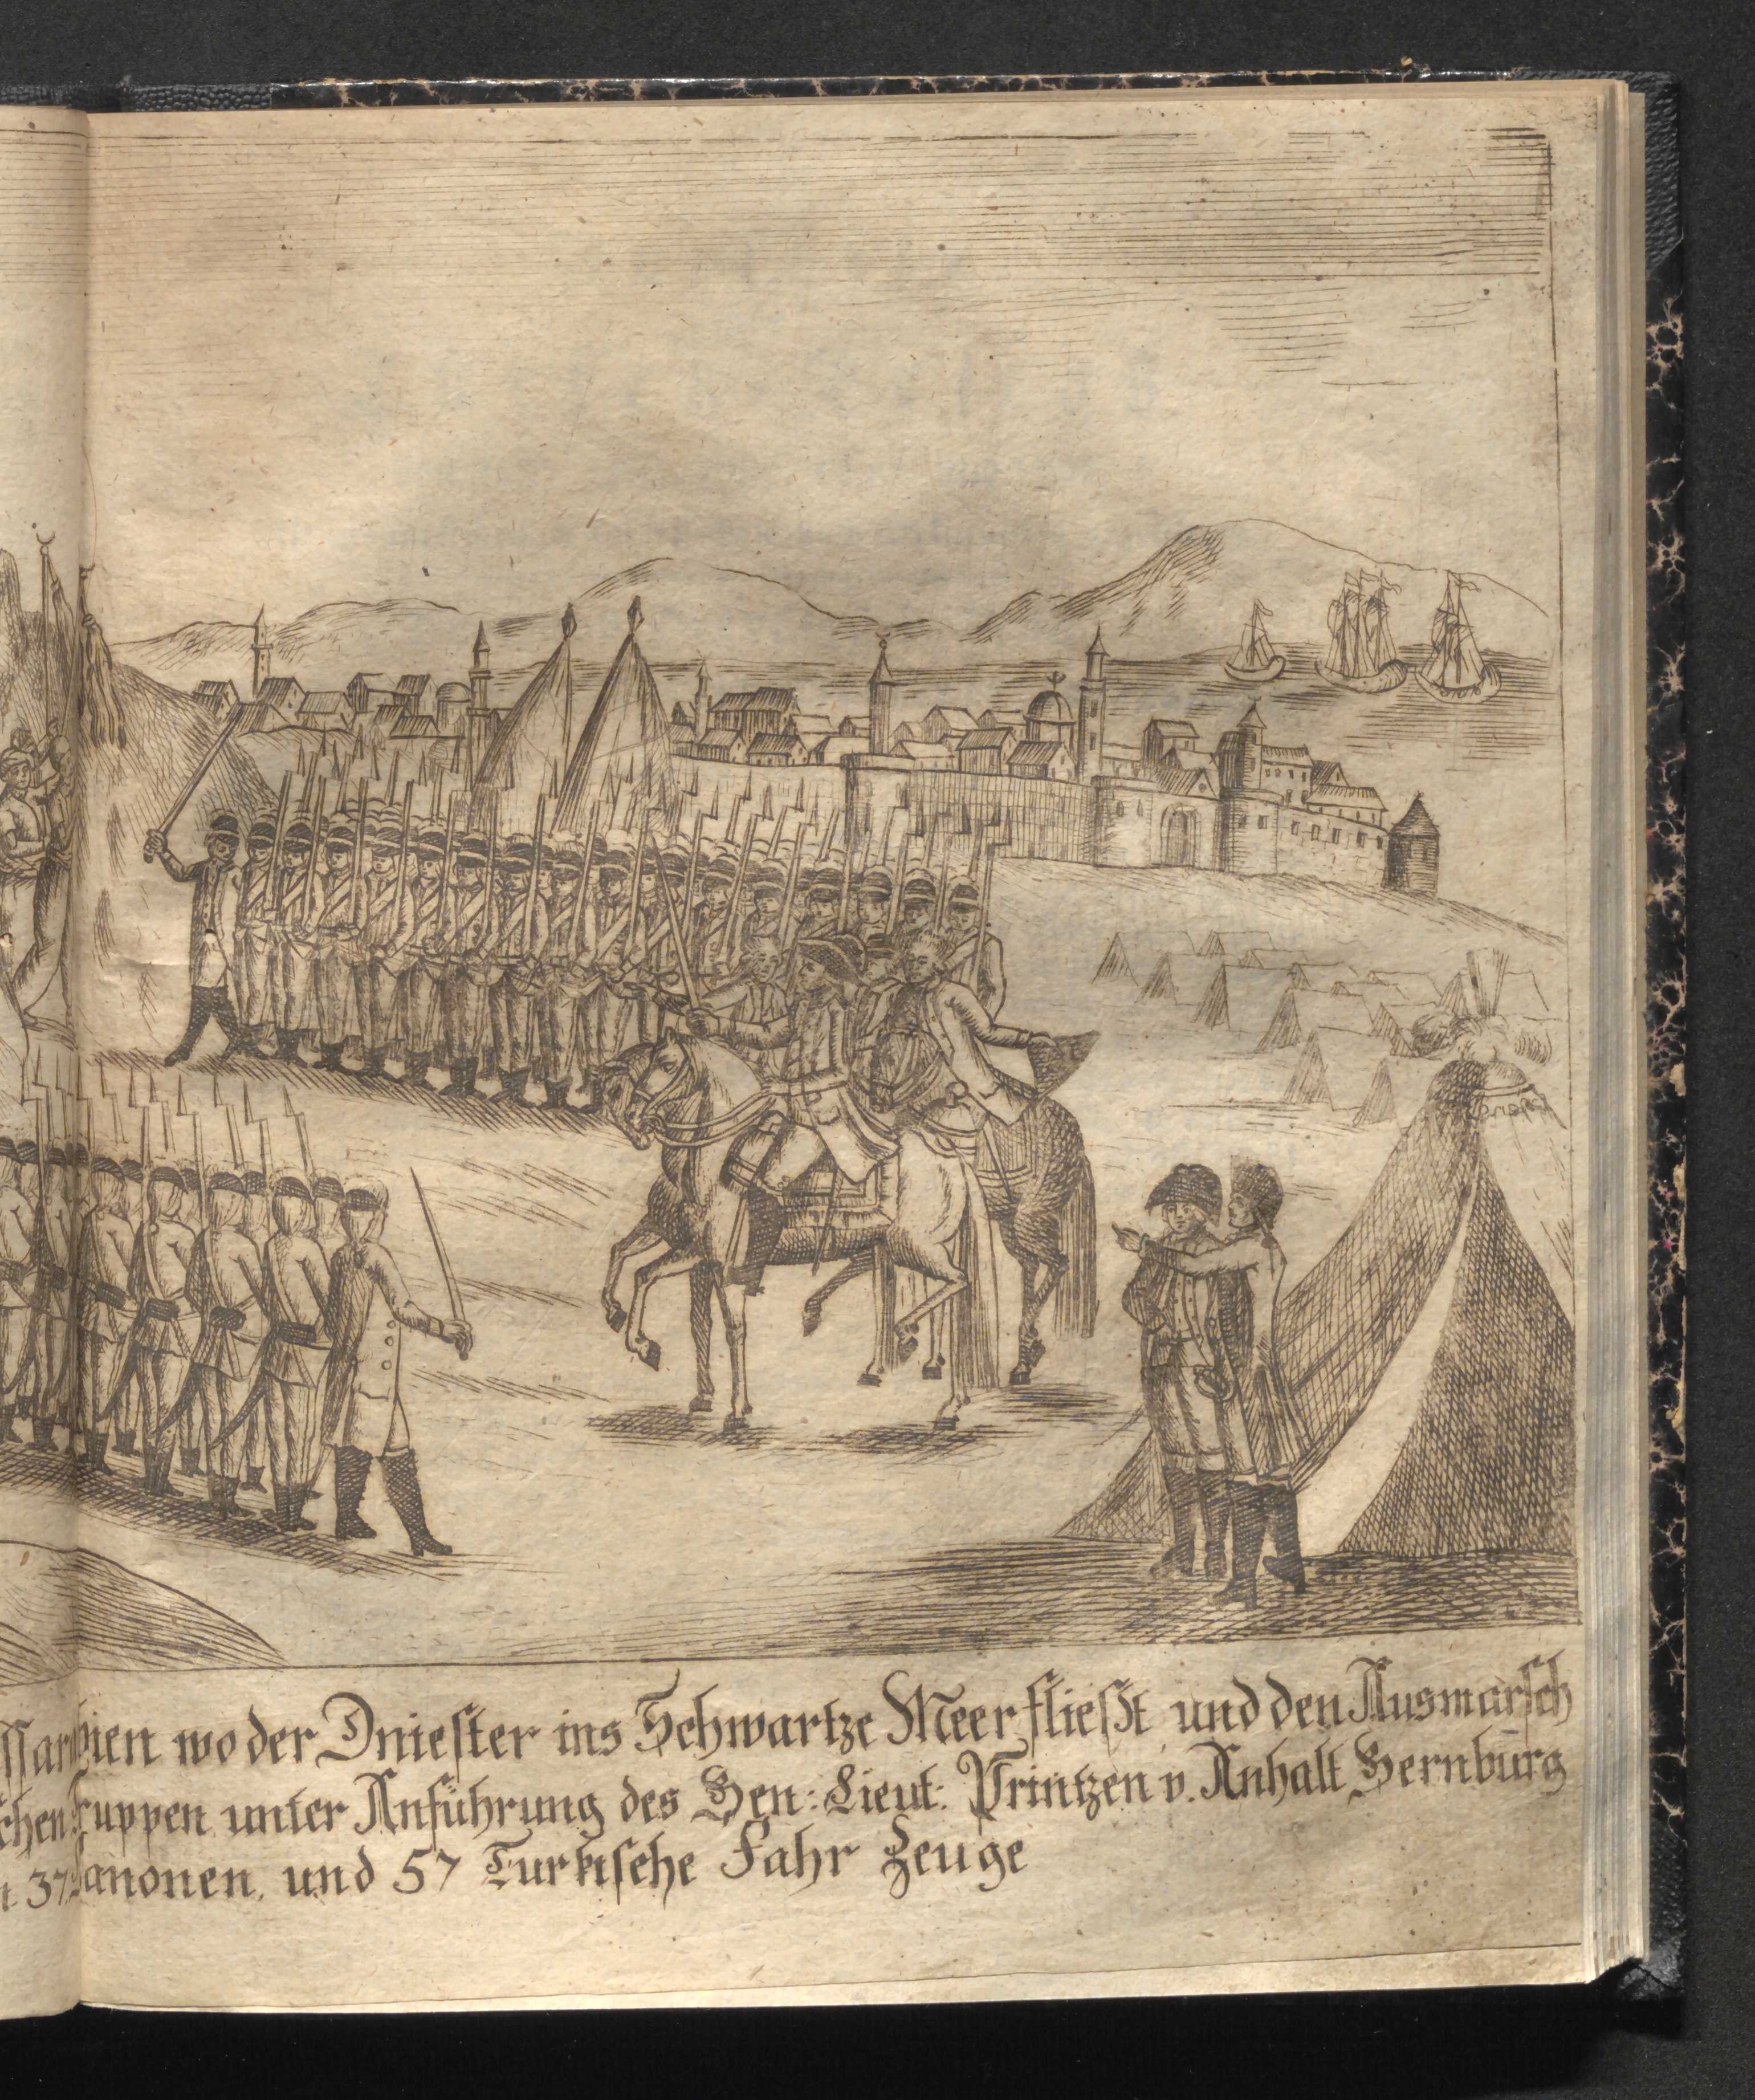 ssarabien wo der Dniester ins Schwartze Meer fließt und den Ausmarsch
schen Truppen unter Anführung des Gen: Lieut: Printzen v. Anhalt Bernburg
37 Canonen, und 57 Turkische Fahr Zeuge